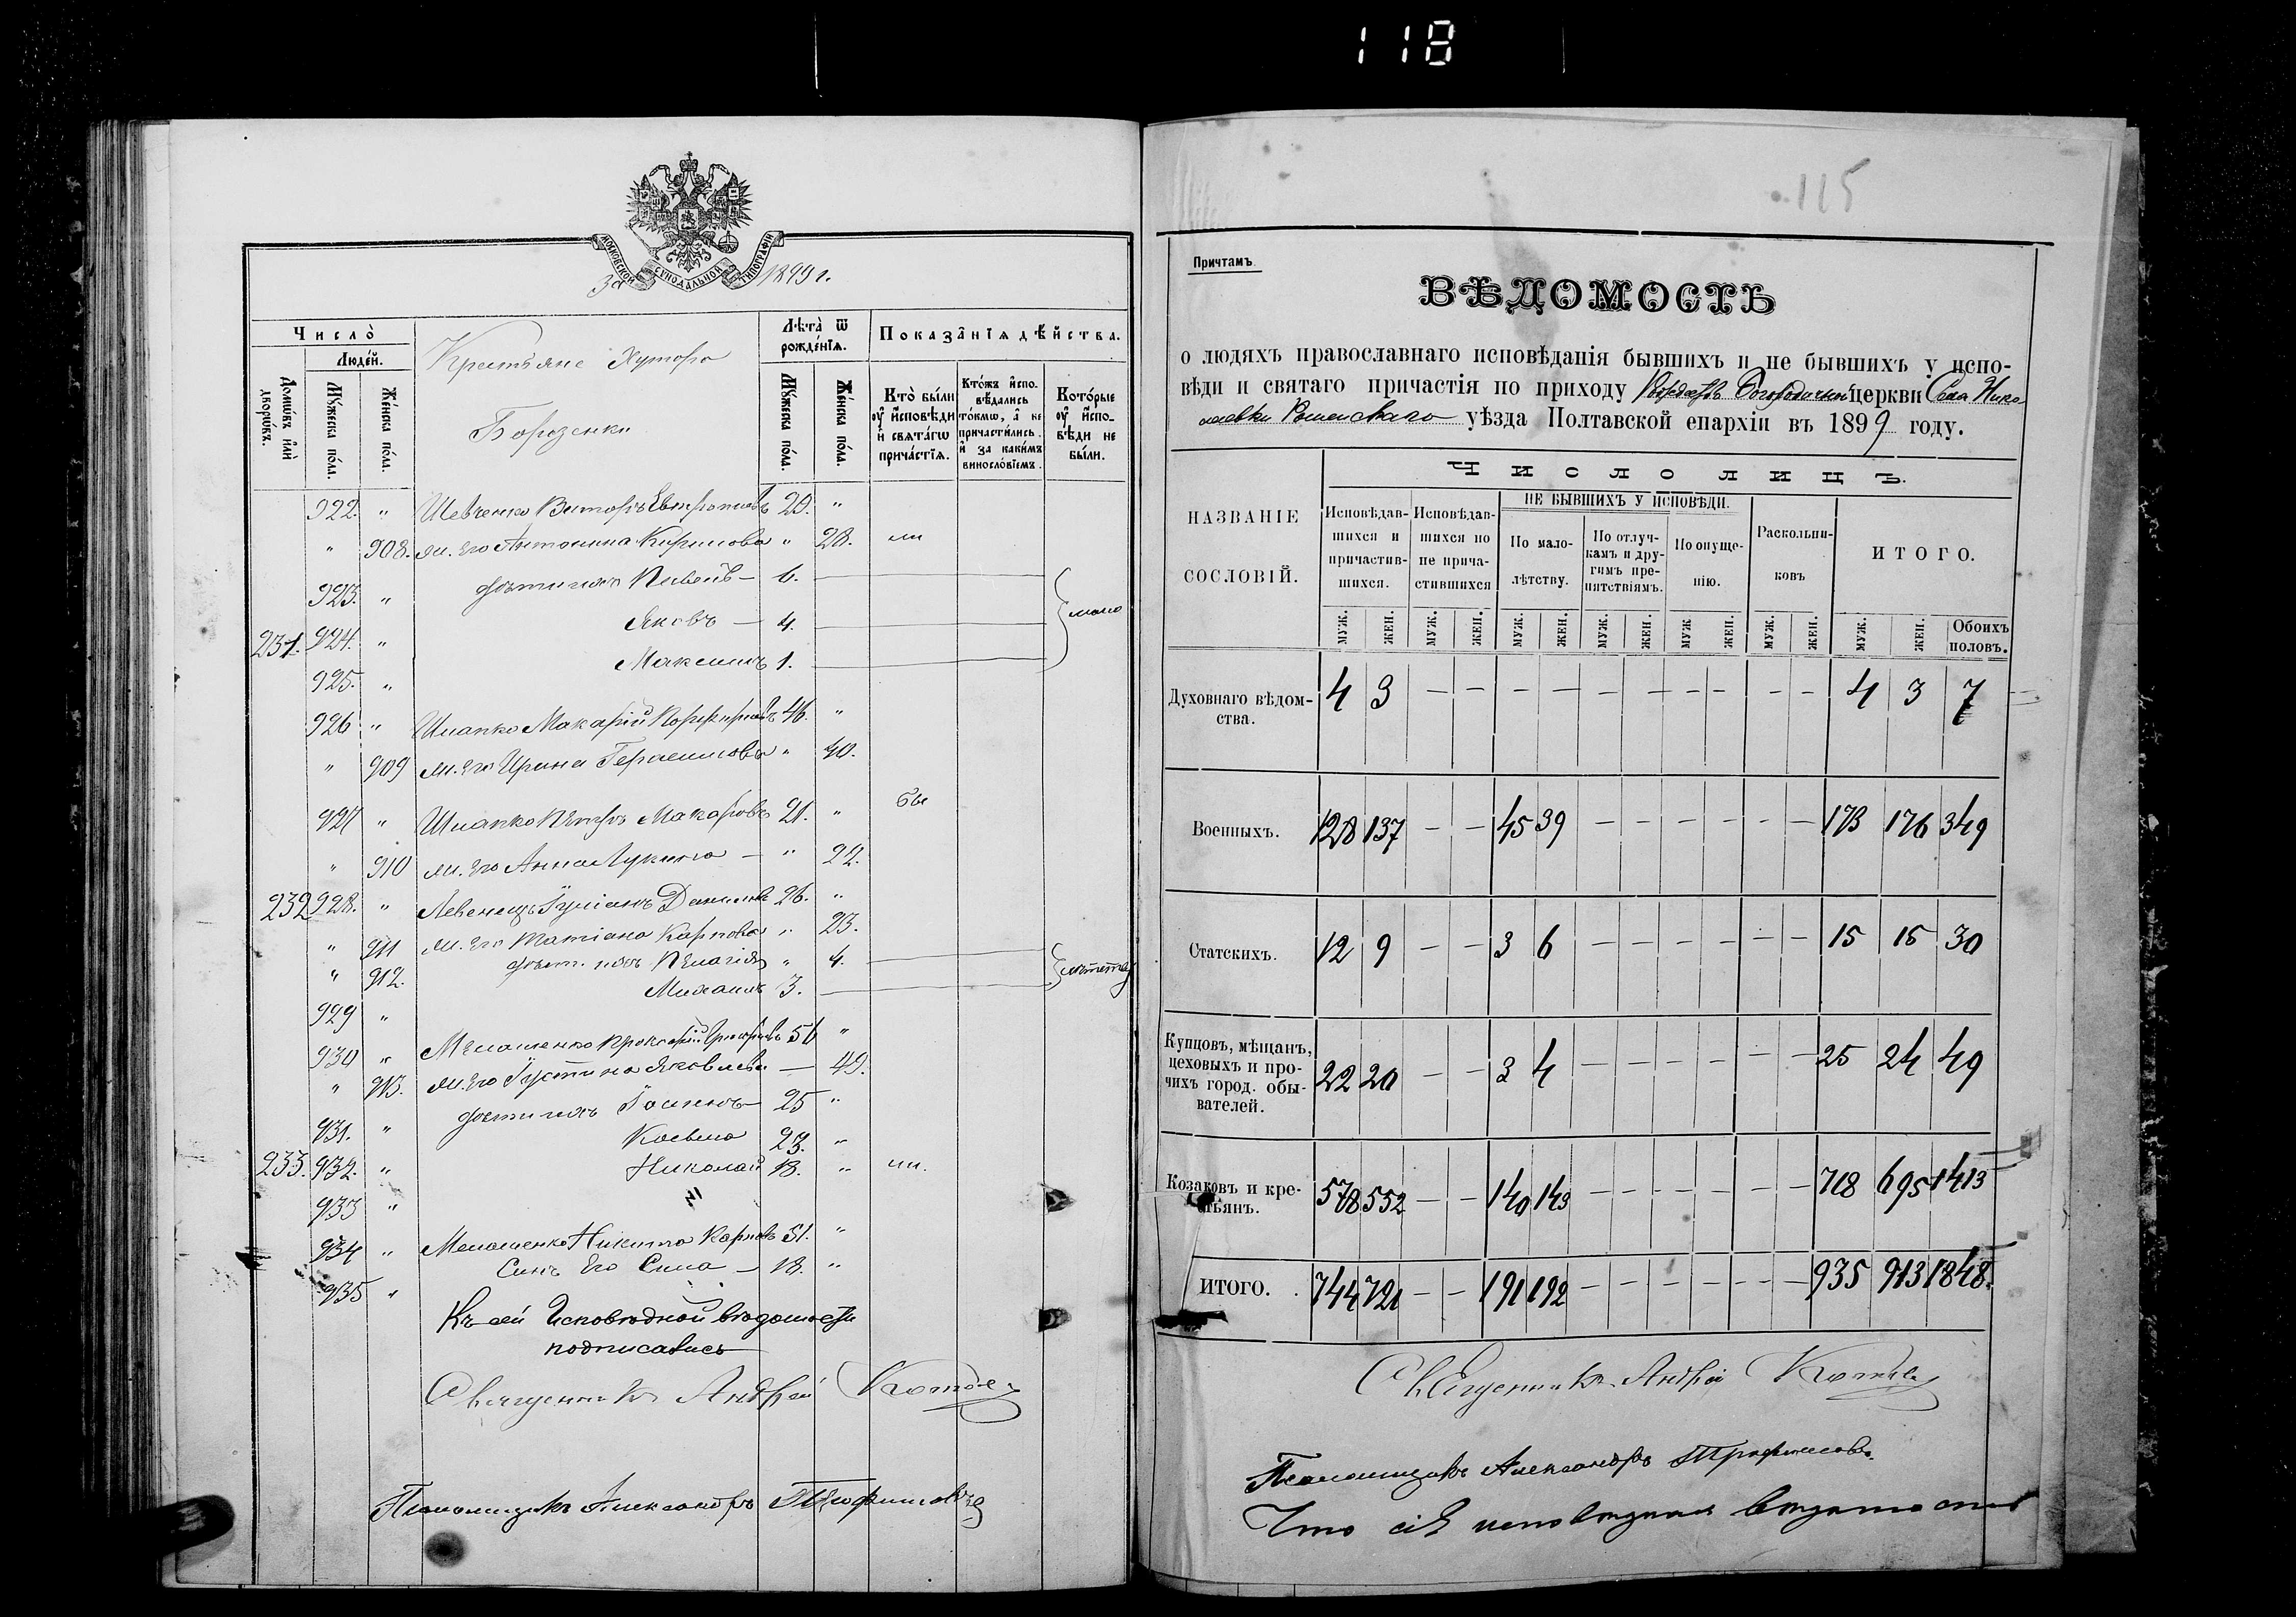 118
МОСКОВСКОЙ СѴНОДАЛЬНОЙ ТИПОГРАФІИ
За 1899 г.
Число̀
Людéй.
Домѡ́въ и҆лѝ дворѡ́въ.
Мꙋ́жеска по́ла.
Же́нска по́ла.
Крестьяне Хутора
Борозенки
Лѣта̀ ѿ рожде́нїѧ.
Мꙋ́жеска по́ла.
Же́нска по́ла.
Показа̑нїѧ дѣ́йства.
Кто̀ бы́ли оу҆ и҆сповѣди и҆ свѧта́гѡ прича́стїѧ.
Кто́жъ и҆спо-
вѣ́дались
то́кмѡ, а҆ не
причасти́лись.
и҆ за каки́мъ
винослові́емъ.
Кото́рые
оу҆ и҆спо-
вѣди не
бы́ли.
922. " Шевченко Викторъ Евтропіевъ 29. "
" 908. ж. его Антонина Кирилова " 28.
923. " дѣти ихъ Павелъ — 6.
231. 924. " Яковъ — 4.
925. " Максимъ 1.
926 " Шапко Макарій Порфирьевъ 46. "
" 909 ж. его Ирина Герасимова " 40.
927 " Шапко Петръ Макаровъ 21. " бы
" 910 ж. его Анна Лукина — " 22.
232 928. " Левенецъ Іуліанъ Даниловъ 26. "
" 911 ж. его Татіана Карпова " 23.
" 912. дѣт. ихъ Пелагія " 4.
929 " Михаилъ 3.
930 " Мелашенко Григорьевъ 51 "
" 913. ж. его Іустина Яковлева — 49.
931. " дѣти ихъ Іоаннъ 25 "
233. 932. " Косьма 23. "
933 " Николай 18. " ли.
934 " Мелашенко Никита Карповъ 51. "
935 " Сынъ его Сила — 18. "
Къ сей Исповѣдной вѣдомости
подписались
Священникъ Андрей
Псаломщикъ Александръ Трофимовъ
115
Причтамъ.
ВѢДОМОСТЬ
о людяхъ православнаго исповѣданія бывшихъ и не бывшихъ у испо-
вѣди и святаго причастія по приходу Рождество Богородичной церкви Села Нико-
лаевки Роменскаго уѣзда Полтавской епархіи въ 1899 году.
НАЗВАНІЕ
СОСЛОВІЙ.
ЧИСЛО ЛИЦЪ.
Исповѣдав-
шихся и
причастив-
шихся.
Исповѣдав-
шихся но
не прича-
стившихся
НЕ БЫВШИХЪ У ИСПОВѢДИ.
По мало-
лѣтству.
По отлуч-
камъ и дру-
гимъ пре-
пятствіямъ.
По опуще-
нію.
Раскольни-
ковъ
ИТОГО.
МУЖ. ЖЕН. МУЖ. ЖЕН. МУЖ. ЖЕН. МУЖ. ЖЕН. МУЖ ЖЕН. МУЖ. ЖЕН. МУЖ. ЖЕН. Обоихъ половъ.
Духовнаго вѣдом-
ства. 4 3 — — — — — — — — — — 4 3 7
Военныхъ. 128 137 — — 45 39 — — — — — — 173 176 349
Статскихъ. 12 9 — — 3 6 — — — — — — 15 15 30
Купцовъ, мѣщанъ,
цеховыхъ и про-
чихъ город. обы-
вателей. 22 20 — — 3 4 — — — — — — 25 24 49
Козаковъ и кре-
стьянъ. 578 552 — — 140 143 — — — — — — 718 695 1413
ИТОГО. 744 721 — — 191 192 — — — — — — 935 913 1848.
Священникъ Андрей
Псаломщикъ Александръ Трофимовъ.
Что сія исповѣдная вѣдомость